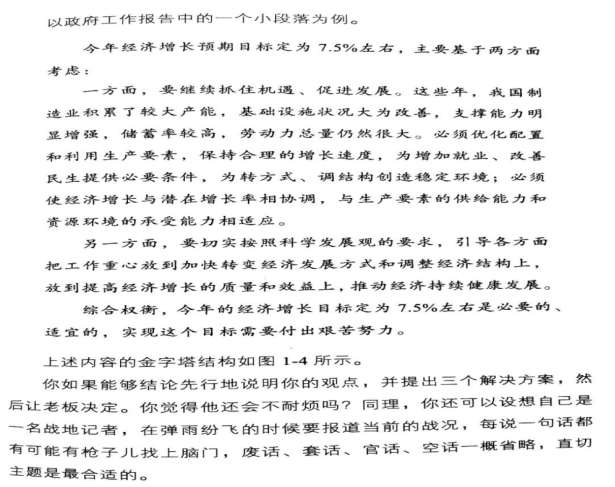 以政府工作报告中的一个小段落为例。
今年经济增长预期目标定为 7.5%左右，主要基于两方面
考虑：
一方面，要继续抓住机遇、促进发展。这些年，我国制
造业积累了较大产能，基础设施状况大为改善，支撑能力明
显增强，储蓄率较高，劳动力总量仍然很大。必须优化配置
和利用生产要素，保持合理的增长速度，为增加就业、改善
民生提供必要条件，为转方式、调结构创造稳定环境；必须
使经济增长与潜在增长率相协调，与生产要素的供给能力和
资源环境的承受能力相适应。
另一方面，要切实按照科学发展观的要求，引导各方面
把工作重心放到加快转变经济发展方式和调整经济结构上，
放到提高经济增长的质量和效益上，推动经济持续健康发展。
综合权衡，今年的经济增长目标定为 7.5%左右是必要的、
适宜的，实现这个目标需要付出艰苦努力。
上述内容的金字塔结构如图 1-4 所示。
你如果能够结论先行地说明你的观点，并提出三个解决方案，然
后让老板决定。你觉得他还会不耐烦吗？同理，你还可以设想自己是
一名战地记者，在弹雨纷飞的时候要报道当前的战况，每说一句话都
有可能有枪子儿找上脑门，废话、套话、官话、空话一概省略，直切
主题是最合适的。